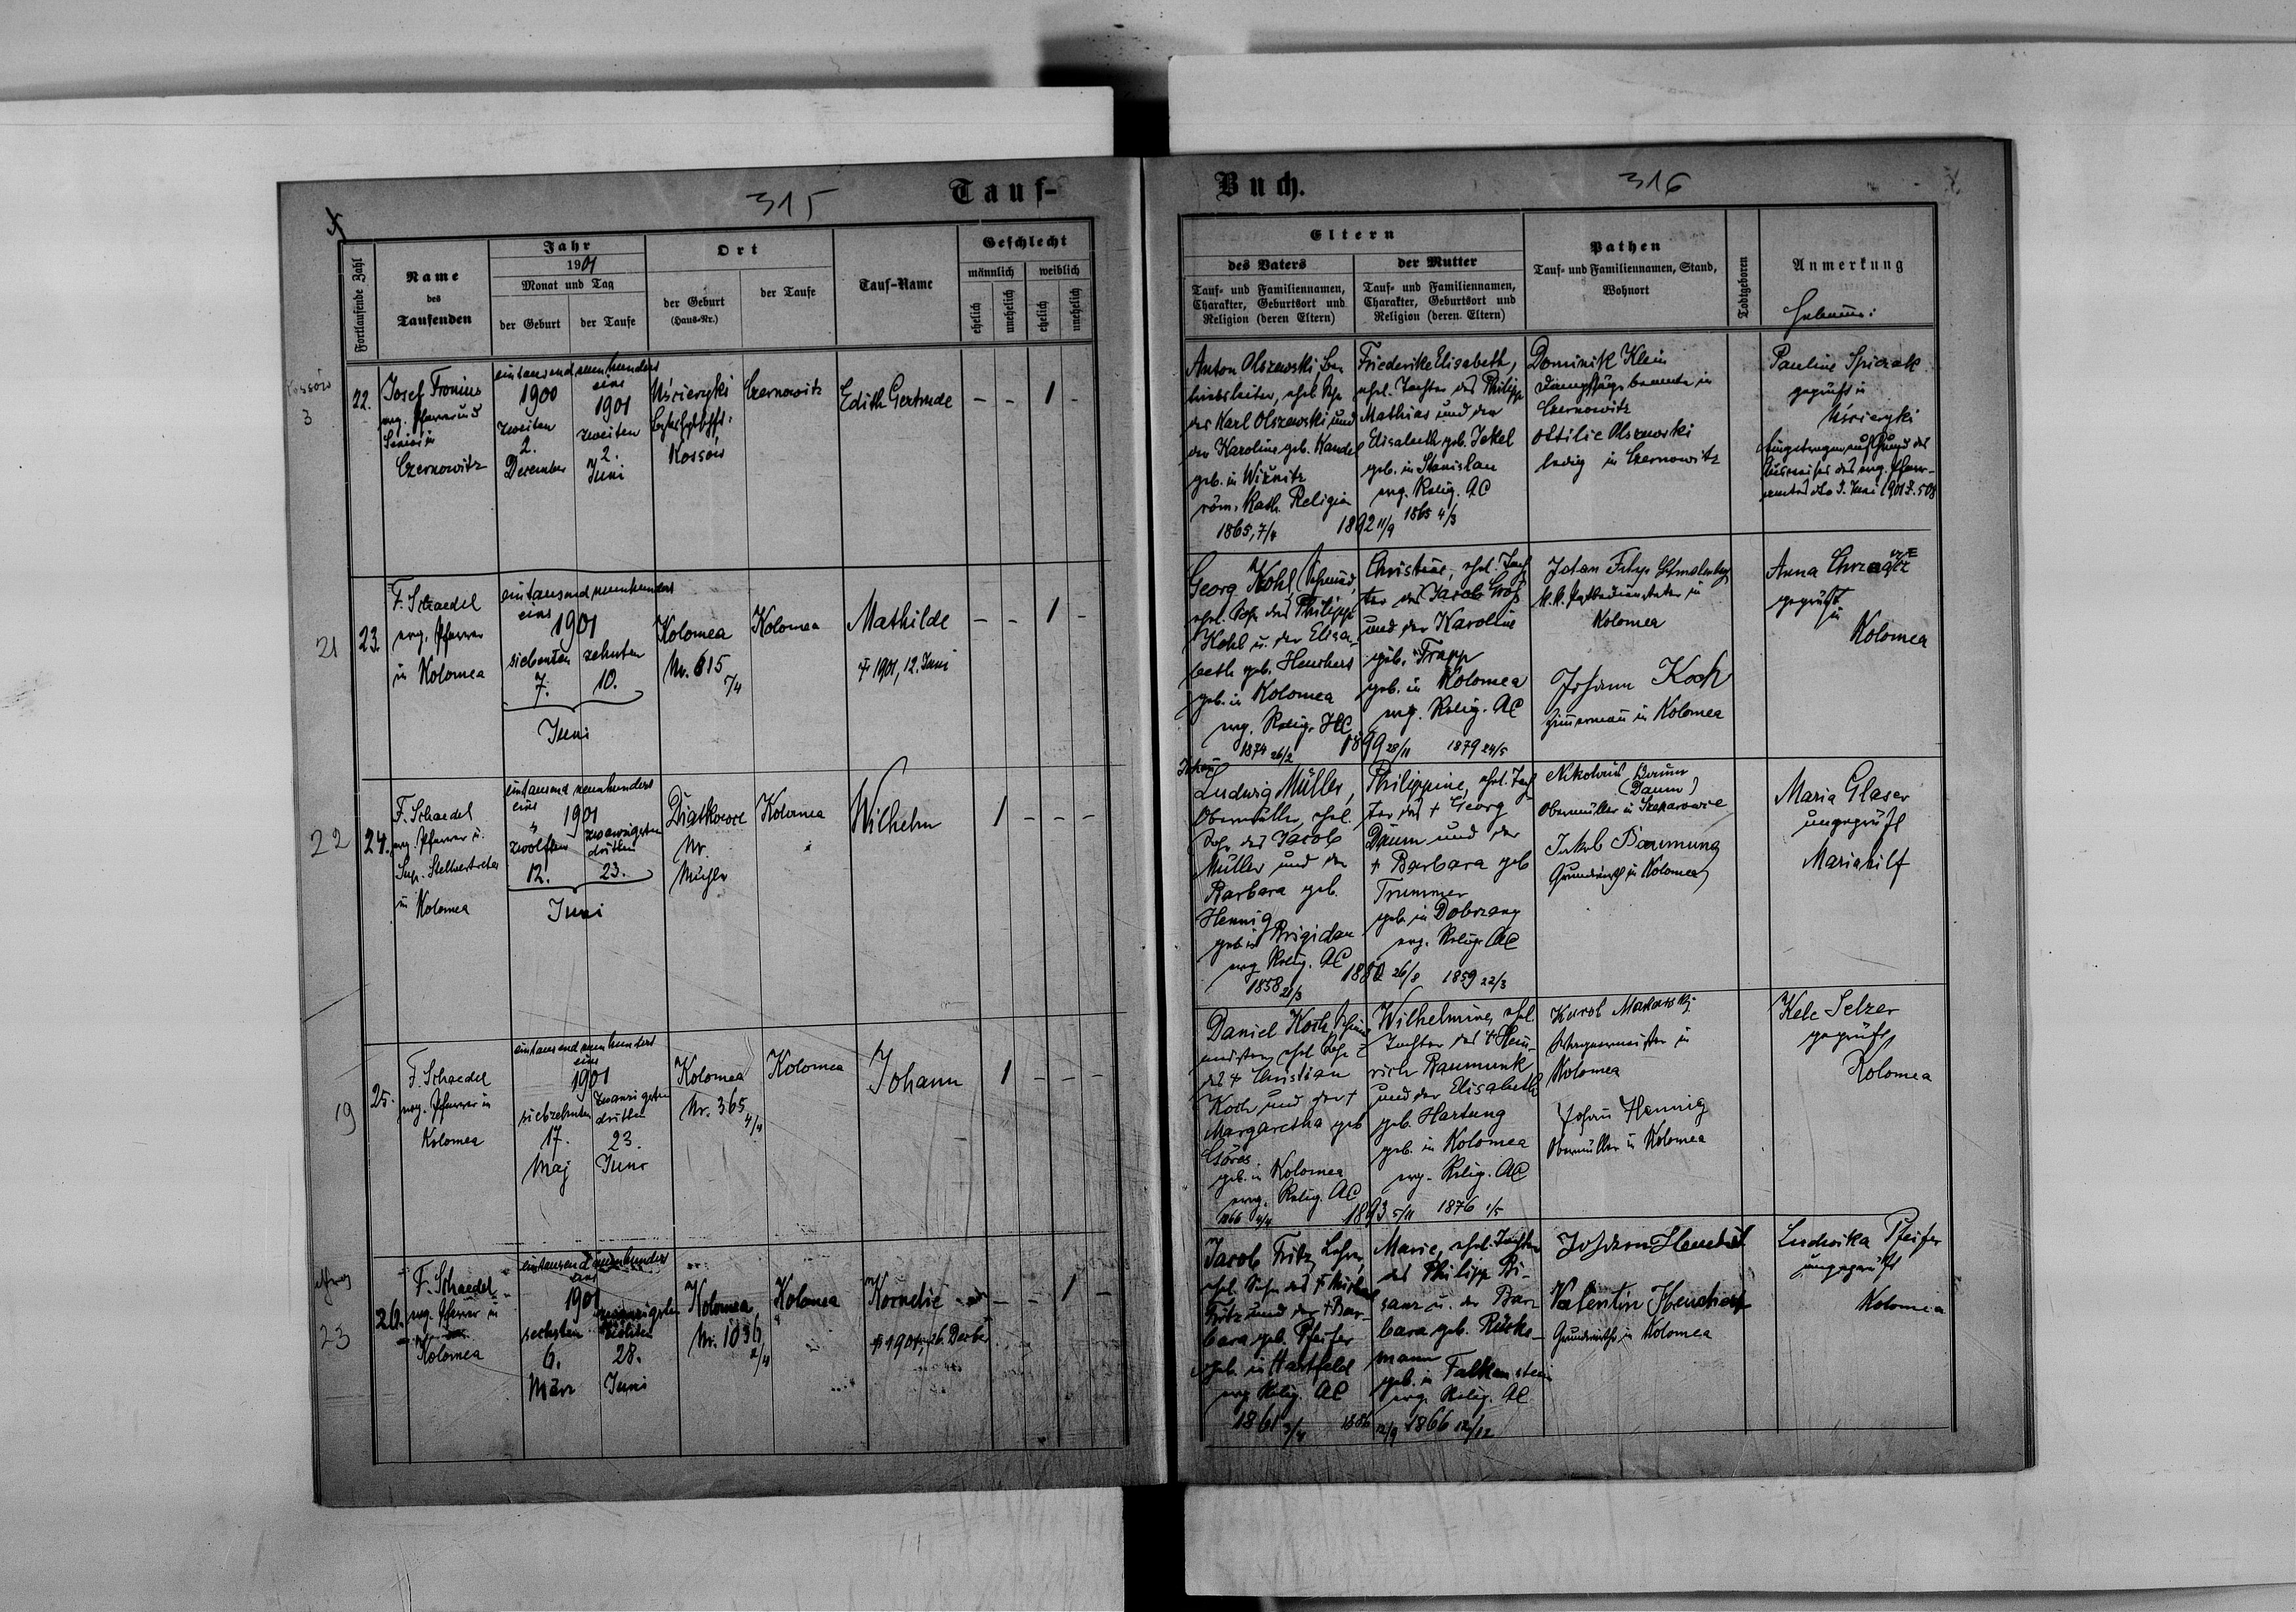 315
Tauf-
Fortlaufende Zahl
Name
des
Taufenden
Jahr
1901
Monat und Tag
der Geburt
der Taufe
Ort
der Geburt
(Haus-Nr.)
der Taufe
Tauf-Name
Geschlecht
männlich
weiblich
ehelich
unehelich
ehelich
unehelich
Kossów
3
22.
Josef Fronius
evg. Pfarrer und
Senior in
Czernowitz
eintausend neunhundert
eins
1900
1901
zweiten
zweiten
2.
2.
December
Juni
Uścieryki
Kossów
Czernowitz
Edith Gertrude
- - 1 -
21
23.
F. Schaedel
evg. Pfarrer
in Kolomea
eintausend neunhundert
eins
1901
siebenten zehnten
7. 10.
Juni
Kolomea
Nr. 615
7/4
Kolomea
Mathilde
† 1901, 12. Juni
- - 1 -
22
24.
F. Schaedel
evg. Pfarrer u.
Sup. Stellvertreter
in Kolomea
eintausend neunhundert
eins
1901
zwölften zwanzigsten
dritten
12. 23.
Juni
Diatkowce
Nr.
Mühle
Kolomea
Wilhelm
1 - - -
19
25.
F. Schaedel
evg. Pfarrer in
Kolomea
eintausend neunhundert
eins
1901
siebzehnten zwanzigsten
dritten
17. 23.
Maj Juni
Kolomea
Nr. 365
4/4
Kolomea
Johann
1 - - -
23
26.
F. Schaedel
evg. Pfarrer in
Kolomea
eintausend neunhundert
eins
1901
sechsten zwanzigsten
achten
6. 28.
März Juni
Kolomea
Nr. 1036
2/4
Kolomea
Kornelie
† 1901, 26. Decbr
- - 1 -
Buch.
316
Eltern
des Vaters
Tauf- und Familiennamen,
Charakter, Geburtsort und
Religion (deren Eltern)
der Mutter
Tauf- und Familiennamen,
Charakter, Geburtsort und
Religion (deren Eltern)
Pathen
Tauf- und Familiennamen, Stand,
Wohnort
Todtgeboren
Anmerkung
Hebamme:
Anton Olszewski, Be-
triebsleiter, ehel. Sohn
des Karl Olszewski und
der Karoline geb. Kandel
geb. in Wiźnitz
röm. Kath. Religion
1865, 7/4
1892 11/9
Friederike Elisabeth,
ehel. Tochter des Philipp
Mathias und der
Elisabeth geb. Jekel
geb. in Stanislau
evg. Relig. AC
1865 4/3
Dominik Klein
Dampfsägebeamte in
Czernowitz
Ottilie Olszewski
ledig in Czernowitz
Pauline Spiczak
geprüft in
Uścieryki
Eingetragen auf Grund des
Ausweises des evg. Pfarr-
amtes dto 3. Juni 1901 Z. 508
Georg Kohl, Schmied,
ehel. Sohn des Philipp
Kohl u. der Elisa-
beth geb. Henchert
geb. in Kolomea
evg. Relig. HC
1874 26/2
1899 28/11
Christine, ehel. Toch-
ter des Jacob Groß
und der Karoline
geb. Trapp
geb. in Kolomea
evg. Relig. AC
1879 24/5
Johan Filip Schmalenberg
Kolomea
Johann Koch
Zimmermann in Kolomea
Anna Chrząszcz
geprüft
in
Kolomea
Johann
Ludwig Müller,
Obermüller, ehel.
Sohn des Jacob
Müller und der
Barbara geb.
Hennig
geb. in Brigidau
evg. Relig. AC
1858 21/3
1880 26/8
Philippine, ehel. Toch-
ter des † Georg
Daum und der
† Barbara geb
Trummer
geb. in Dobrzany
evg. Relig. AC
1859 22/3
Nikolaus Baum
(Daum)
Obermüller in Szeparowce
Jakob Baumung
Grundwirth in Kolomea
Maria Glaser
ungeprüft
Mariahilf
Daniel Koch,
ehel. Sohn
des † Christian
Koch und der †
Margaretha geb
Göres
geb. in Kolomea
evg. Relig. AC
1866 4/4
1893 5/11
Wilhelmine, ehel.
Tochter des † Hein-
rich Baumunk
und der Elisabeth
geb. Hartung
geb. in Kolomea
evg. Relig. AC
1876 1/5
Karol Makarski
Kolomea
Johann Hennig
Obermüller in Kolomea
Kele Selzer
geprüft,
Kolomea
Jacob Fritz, Lehrer,
ehel. Sohn des † Michael
Fritz und der † Bar-
bara geb. Pfeifer
geb. in Hartfeld
evg Relig. AC
1861 3/4
1886 12/9
Marie, ehel. Tochter
des Philipp Bi-
sanz u. der Bar-
bara geb. Rüske-
mann
geb. in Falkenstein
evg. Relig. AC
1866 12/12
Valentin Henchert
Grundwirth in Kolomea
Ludwika Pfeifer
ungeprüft
Kolomea